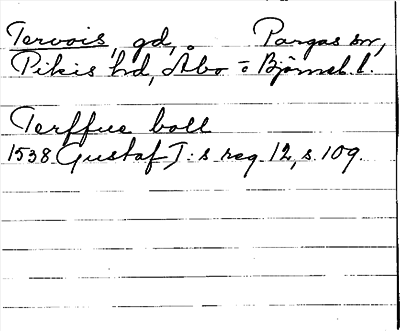 Tervois, gd, Pargas sn,
Pikis hd, Åbo o Björneb. l.
Terffue boll
1538 Gustaf I:s reg. 12, s. 109.